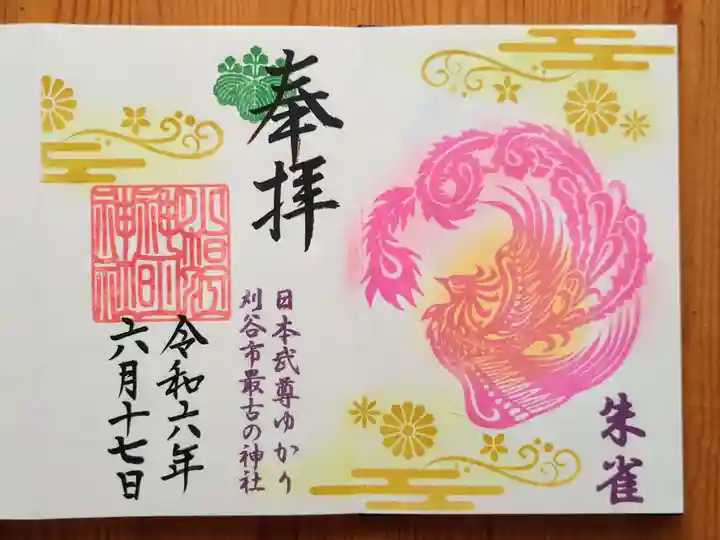 朱雀
奉拝
日本武尊ゆかり
刈谷市最古の神社
小垣江
神明
神社
令和六年
六月十七日